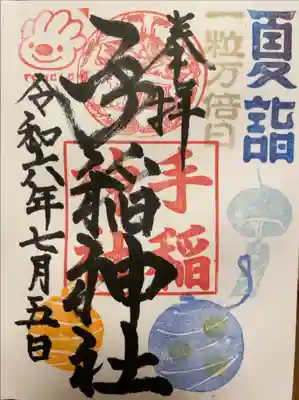 夏詣
一粒万倍日
奉拝
手稲神社
手稲神社
令和六年七月五日